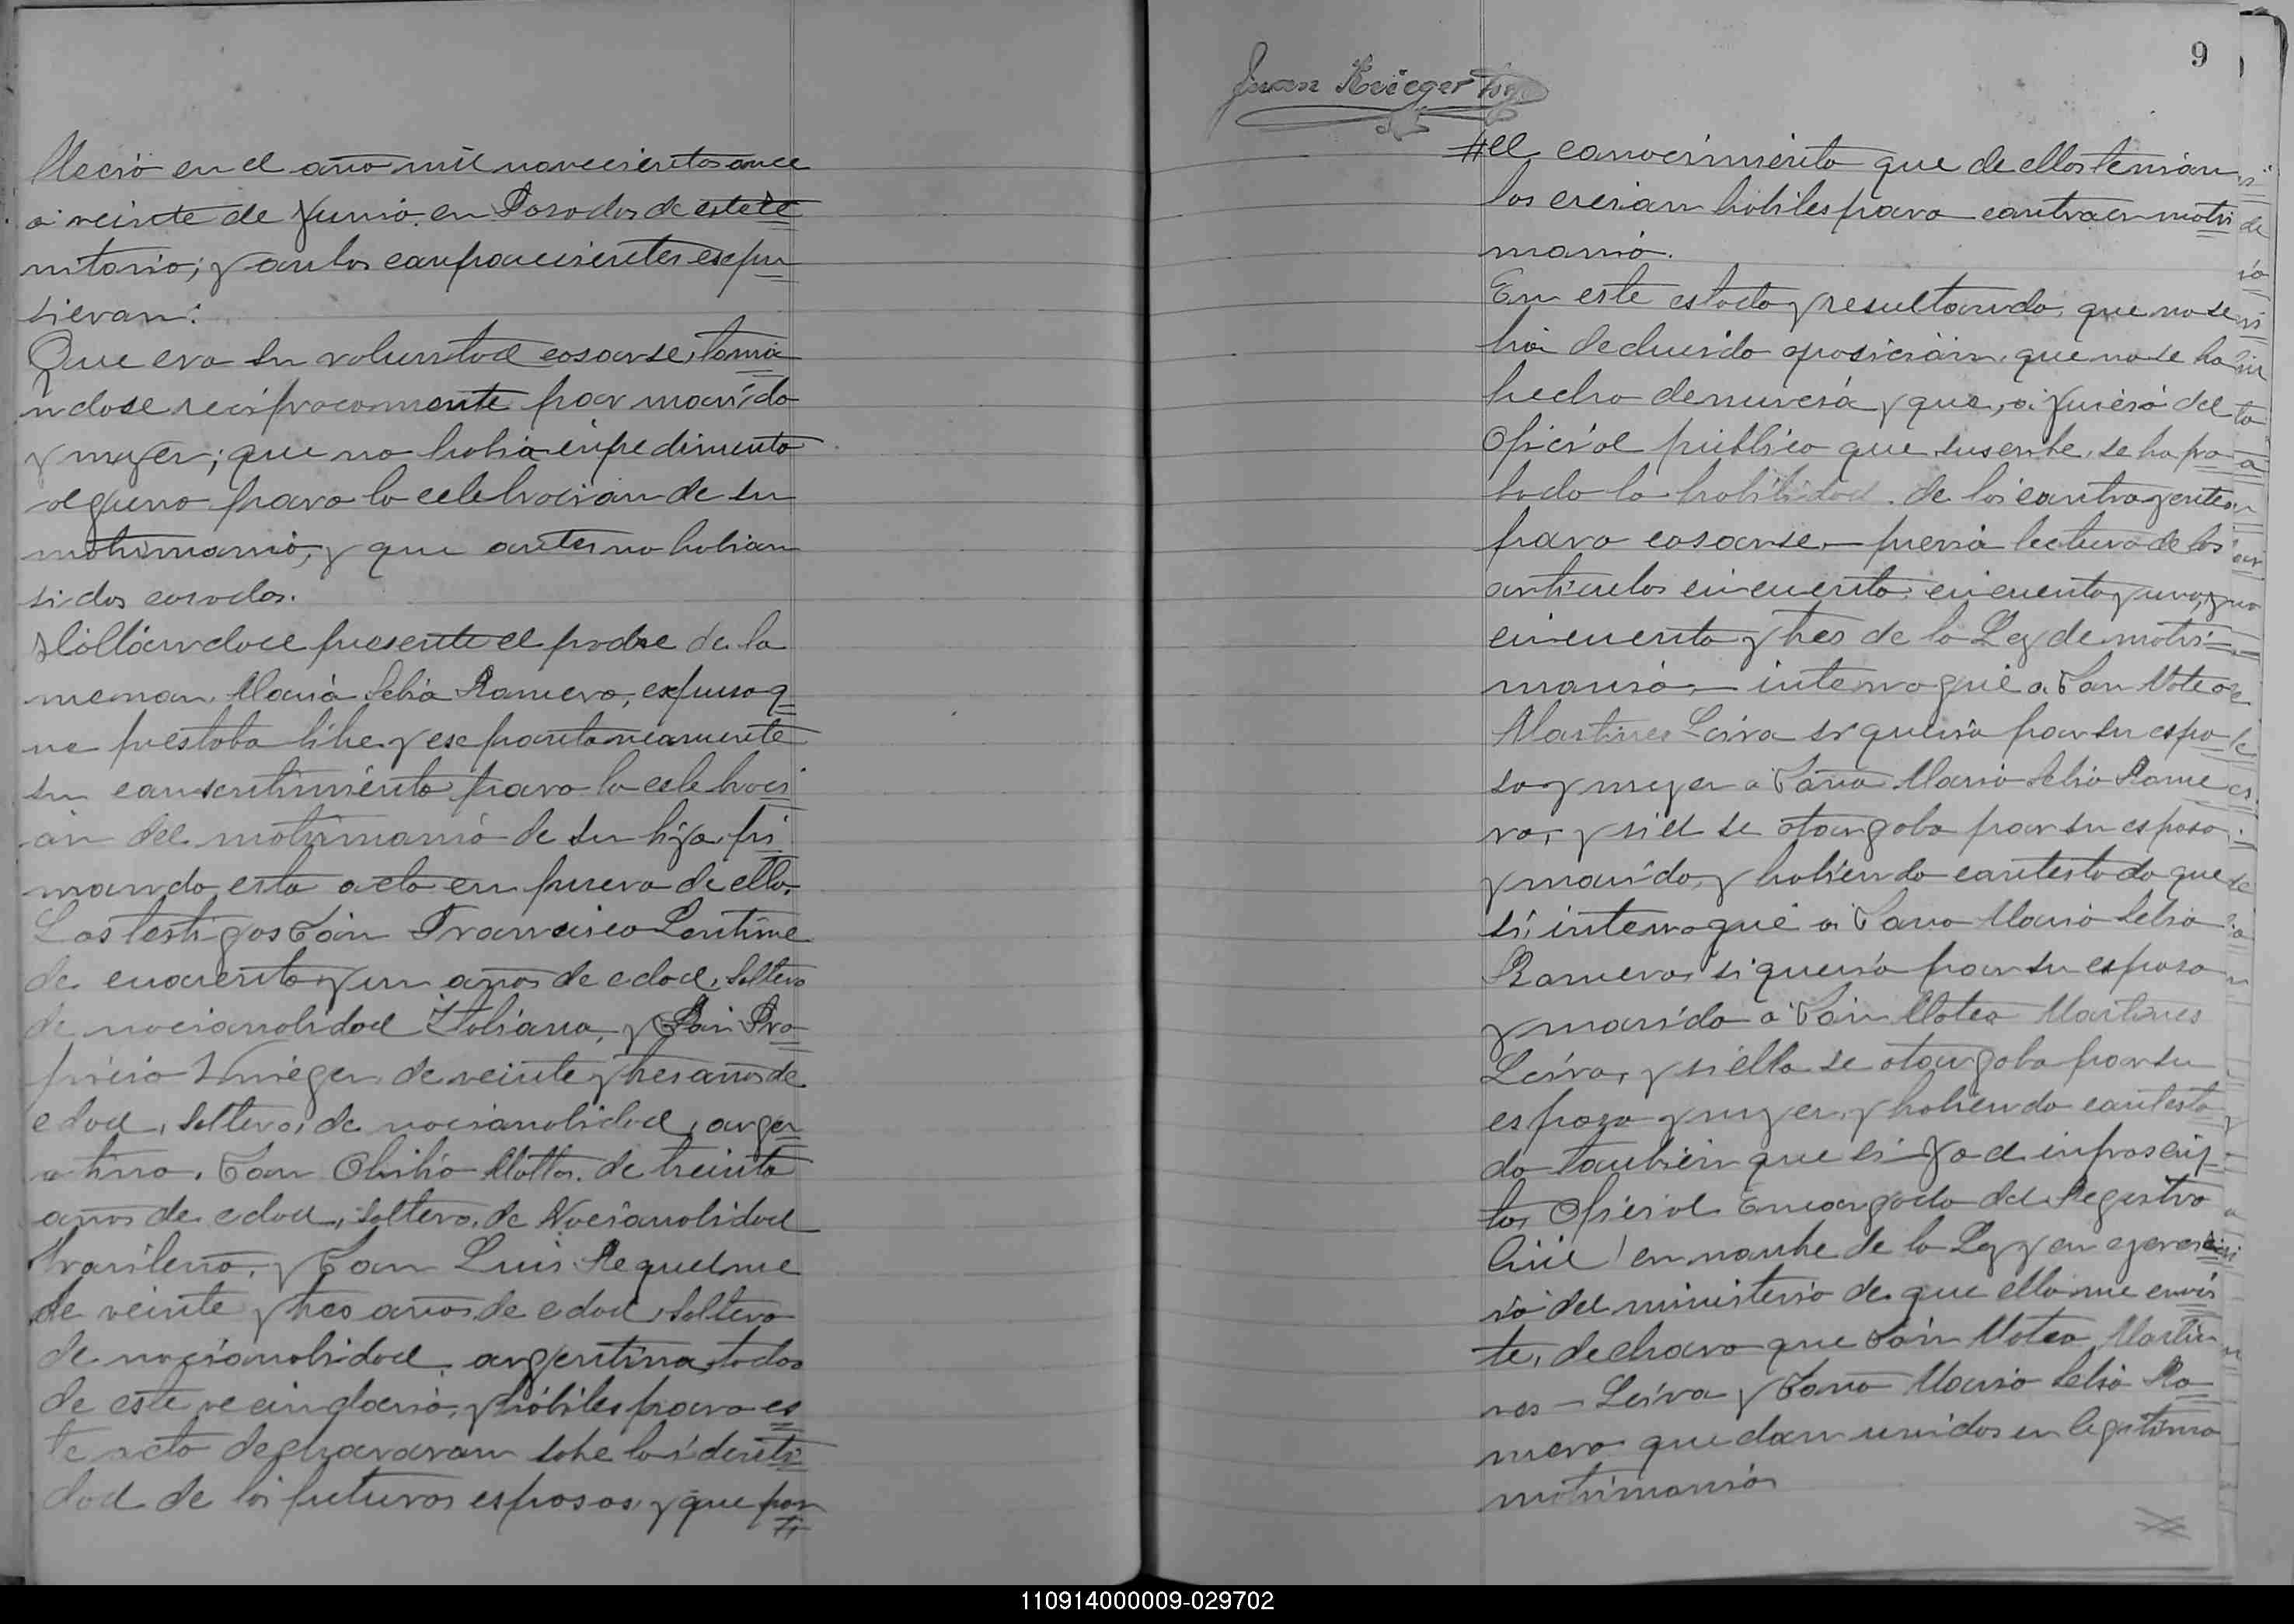 llecio en el año mil novecientos once
a veinte de Junio en Posadas de este te
rritorio; y an los comparecientes expu
sieron:
Que era su voluntad casarse, toma
ndose reciprocamente por marido
y mujer; que no habia inpedimento
alguno para la celebracion de su
matrimonio, y que antes no habian
sidos casados.
Hallandoce presente el padre de la
menor, Maria Selia Romero, expuso q
ue prestaba libre y espontaneamente
su consentimiento para la celebraci
on del matrimonio de su hija, fir
mando esta acta en prueva de ello.
Los testigos Don Francisco Lentine
de cuarenta y un años de edad, soltero
de nacionalidad Italiana, y Don Pro
picio Krieger de veinte y tres años de
edad, soltero, de nacionalidad, argen
tino. Don Obilio Mottos, de treinta
años de edad, soltero, de Nacionalidad
Brasilero, y Don Luis Requelme
de veinte y tres años de edad, soltero
de nacionalidad argentina, todos
de este vecindario, y habiles para es
te acto declararon sobre la identi
dad de los futuros esposos, y que por
Juan Krieger
9
el conocimiento que de ellos tenian
los creian habiles para contraer matri
monio.
En este estado y resultando, que no se
ha deducido oposicion, que no se ha
hecho denuncia y que, a juicio del
Oficial publico que suscribe, se ha pro
bado la habilidad de los contrayentes
para casarse, — previa lectura de los
articulos cincuenta, cincuenta y uno, y
cincuenta y tres de la Ley de matri
monio, — interrogué a Don Mateo
Martines Leiva si queria por su espo
sa y mujer a Doña Maria Selia Rome
ro, y si el se otorgaba por su esposo
y marido, y habiendo contestado que
si; interrogué a Doña Maria Selia
Romero, si queria por su esposo
y marido a Don Mateo Martines
Leiva, y si ella se otorgaba por su
esposa y mujer, y habiendo contesta
do tambien que si — Yo el infrascrip
to, Oficial Encargado del Registro
Civil en nombre de la Ley y en ejerci
cio del ministerio de que ella me envis
te, declaro que Don Mateo Marti
nes — Leiva y Doña Maria Selia Ro
mero quedan unidos en legitimo
matrimonio
110914000009-029702